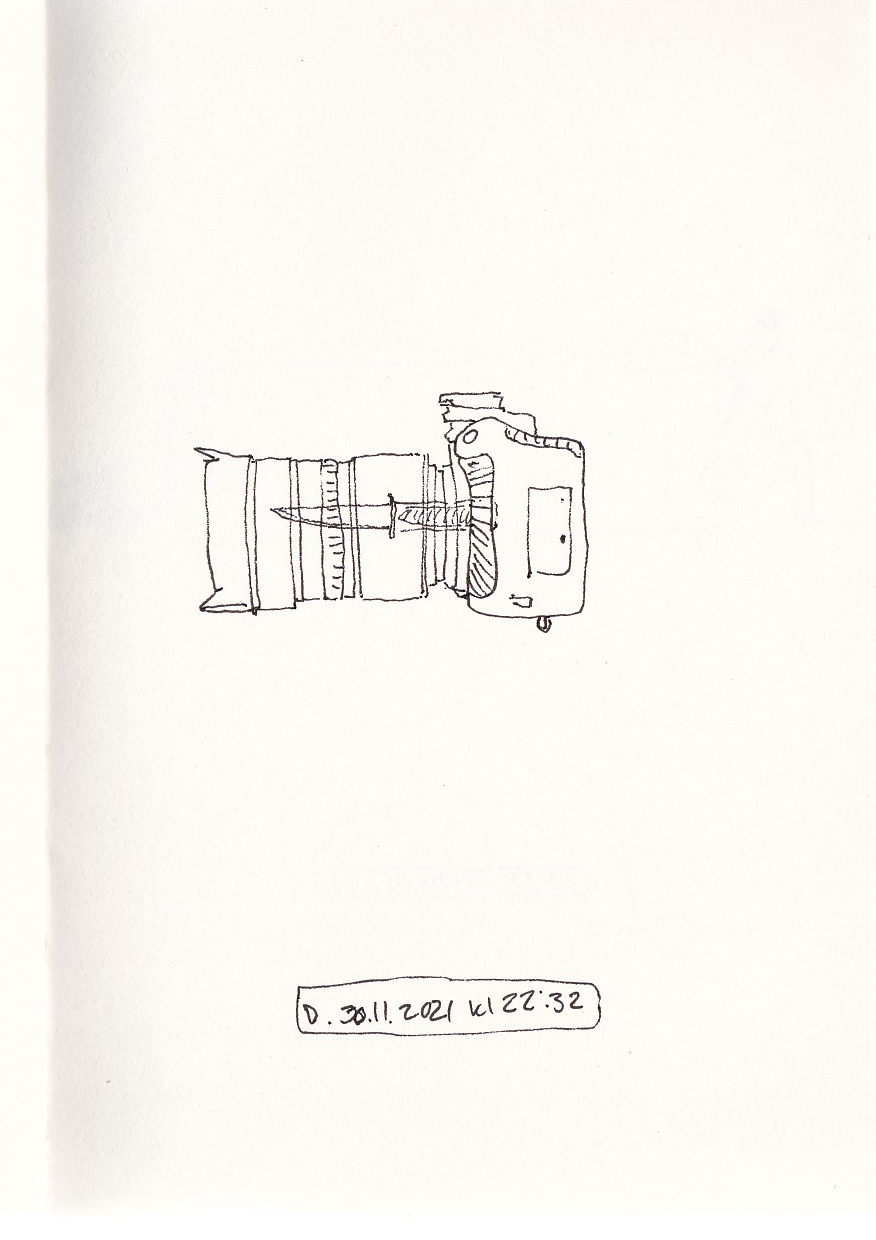 D. 30.11.2021 kl 22:32